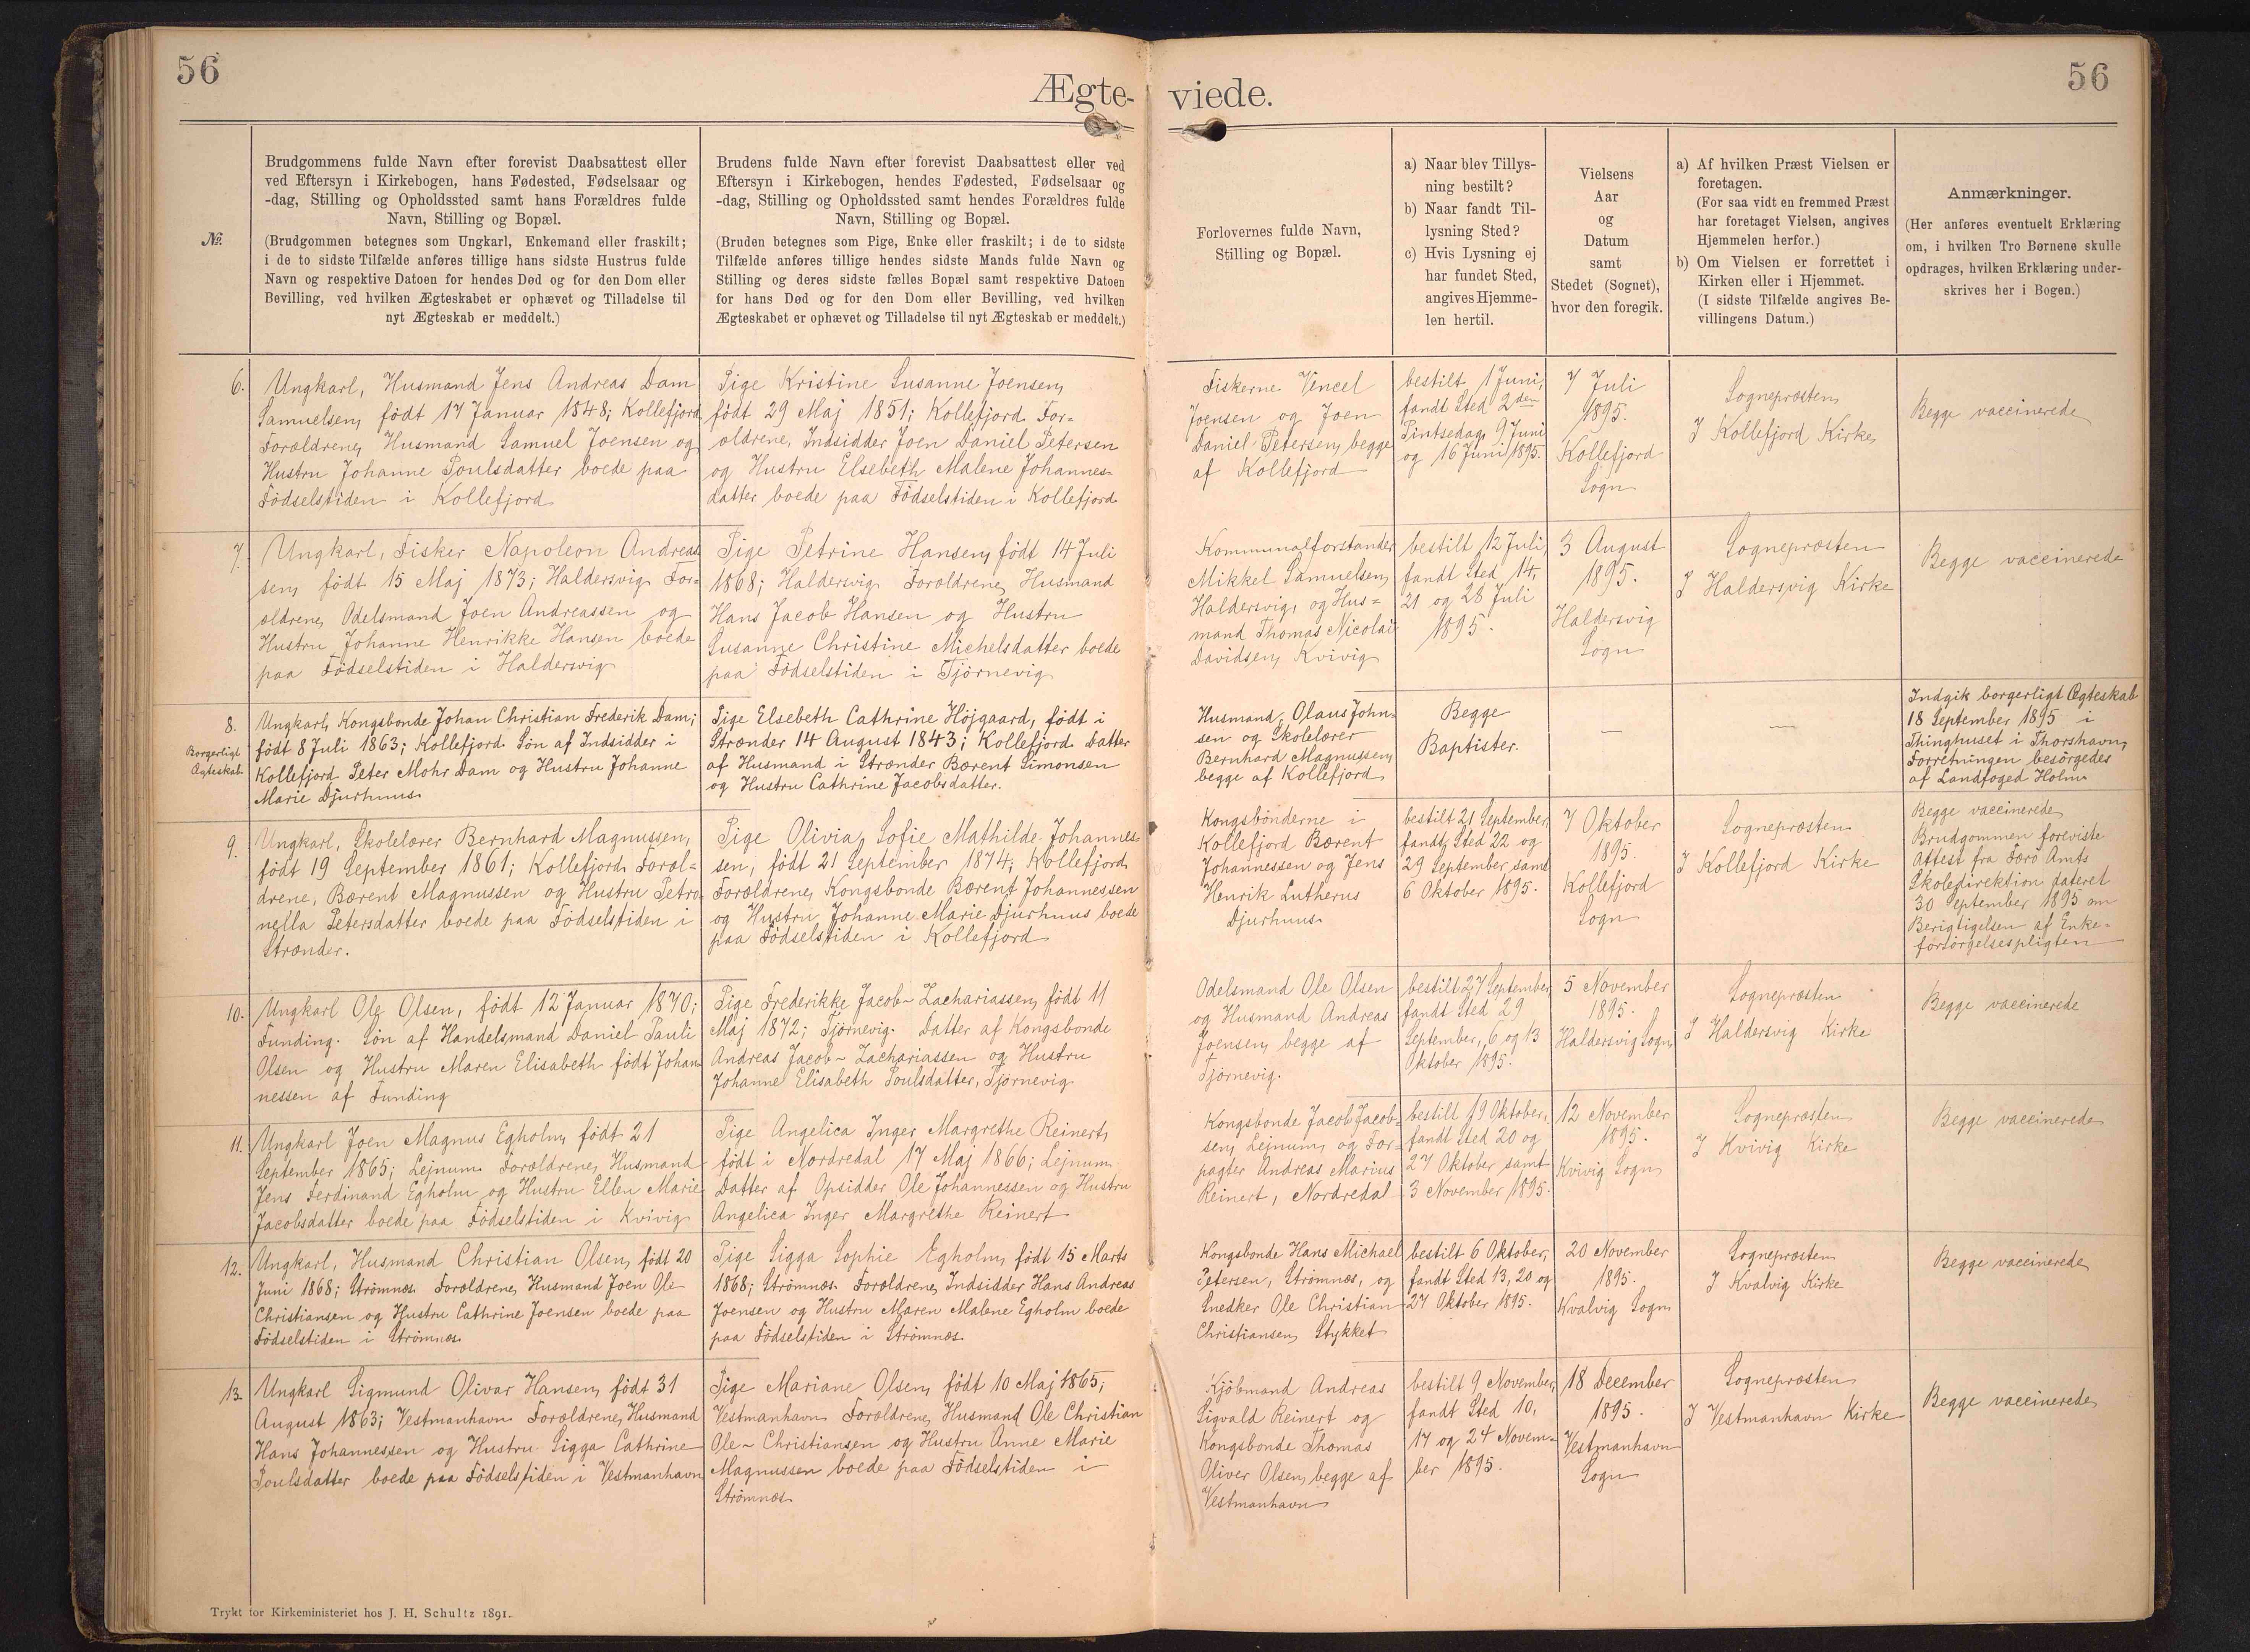 56
Ægte-
viede.
56
№.
Brudgommens fulde Navn efter forevist Daabsattest eller
ved Eftersyn i Kirkebogen, hans Fødested, Fødselsaar og
-dag, Stilling og Opholdssted samt hans Forældres fulde
Navn, Stilling og Bopæl.
(Brudgommen betegnes som Ungkarl, Enkemand eller fraskilt;
i de to sidste Tilfælde anføres tillige hans sidste Hustrus fulde
Navn og respektive Datoen for hendes Død og for den Dom eller
Bevilling, ved hvilken Ægteskabet er ophævet og Tilladelse til
nyt Ægteskab er meddelt.)
Brudens fulde Navn efter forevist Daabsattest eller ved
Eftersyn i Kirkebogen, hendes Fødested, Fødselsaar og
-dag, Stilling og Opholdssted samt hendes Forældres fulde
Navn, Stilling og Bopæl.
(Bruden betegnes som Pige, Enke eller fraskilt; i de to sidste
Tilfælde anføres tillige hendes sidste Mands fulde Navn og
Stilling og deres sidste fælles Bopæl samt respektive Datoen
for hans Død og for den Dom eller Bevilling, ved hvilken
Ægteskabet er ophævet og Tilladelse til nyt Ægteskab er meddelt.)
Forlovernes fulde Navn,
Stilling og Bopæl.
a) Naar blev Tillys-
ning bestilt?
b) Naar fandt Til-
lysning Sted?
c) Hvis Lysning ej
har fundet Sted,
angives Hjemme-
len hertil.
Vielsens
Aar
og
Datum
samt
Stedet (Sognet),
hvor den foregik.
a) Af hvilken Præst Vielsen er
foretagen.
(For saa vidt en fremmed Præst
har foretaget Vielsen, angives
Hjemmelen herfor.)
b) Om Vielsen er forrettet i
Kirken eller i Hjemmet.
(I sidste Tilfælde angives Be-
villingens Datum.)
Anmærkninger.
(Her anføres eventuelt Erklæring
om, i hvilken Tro Børnene skulle
opdrages, hvilken Erklæring under-
skrives her i Bogen.)
6.
Ungkarl, Husmand Jens Andreas Dam
Samuelsen, født 17 Januar 1848; Kollefjord
Forældrene, Husmand Samuel Joensen og
Hustru Johanne Poulsdatter boede paa
Fødselstiden i Kollefjord
Pige Kristine Susanne Joensen,
født 29 Maj 1851; Kollefjord. For-
ældrene, Indsidder Joen Daniel Petersen
og Hustru Elsebeth Malene Johannes-
datter boede paa Fødselstiden i Kollefjord
Fiskerne Vencel
Joensen og Joen
Daniel Petersen, begge
af Kollefjord
bestilt 1 Juni,
fandt Sted 2den
Pintsedag, 9 Juni
og 16 Juni 1895.
7 Juli
1895.
Kollefjord
Sogn
Sognepræsten
I Kollefjord Kirke
Begge vaccinerede
7.
Ungkarl, Fisker Napoleon Andreas
sen, født 15 Maj 1873; Haldersvig. For-
ældrene, Odelsmand Joen Andreassen og
Hustru Johanne Henrikke Hansen boede
paa Fødselstiden i Haldersvig
Pige Petrine Hansen, født 14 Juli
1868; Haldersvig. Forældrene, Husmand
Hans Jacob Hansen og Hustru
Susanne Christine Michelsdatter boede
paa Fødselstiden i Tjørnevig
Kommunalforstander
Mikkel Samuelsen,
Haldersvig, og Hus=
mand Thomas Nicolai
Davidsen, Kvivig
bestilt 12 Juli,
fandt Sted 14,
21 og 28 Juli
1895.
3 August
1895.
Haldersvig
Sogn
Sognepræsten
I Haldersvig Kirke
Begge vaccinerede
8.
Borgerligt
Ægteskab
Ungkarl, Kongsbonde Johan Christian Frederik Dam;
født 8 Juli 1863; Kollefjord. Søn af Indsidder i
Kollefjord Peter Mohr Dam og Hustru Johanne
Marie Djurhuus
Pige Elsebeth Cathrine Højgaard, født i
Strænder 14 August 1843; Kollefjord. Datter
af Husmand i Strænder Bærent Simonsen
og Hustru Cathrine Jacobsdatter.
Husmand, Olaus John-
sen og Skolelærer
Bernhard Magnussen,
begge af Kollefjord
Begge
Baptister.
—
—
Indgik borgerligt Ægteskab
18 September 1895 i
Thinghuset i Thorshavn,
Forretningen besørgedes
af Landfoged Holm
9.
Ungkarl, Skolelærer Bernhard Magnussen,
født 19 September 1861; Kollefjord. Foræl=
drene, Bærent Magnussen og Hustru Petro
nella Petersdatter boede paa Fødselstiden i
Strænder.
Pige Olivia Sofie Mathilde Johannes-
sen, født 21 September 1874; Kollefjord
Forældrene, Kongsbonde Bærent Johannessen
og Hustru Johanne Marie Djurhuus boede
paa Fødselstiden i Kollefjord
Kongsbønderne i
Kollefjord Bærent
Johannessen og Jens
Henrik Lutherus
Djurhuus
bestilt 21 September,
fandt Sted 22 og
29 September samt
6 Oktober 1895.
7 Oktober
1895.
Kollefjord
Sogn
Sognepræsten
I Kollefjord Kirke
Begge vaccinerede
Brudgommen foreviste
Attest fra Færø Amts
Skoledirektion dateret
30 September 1895 om
Berigtigelsen af Enke-
forsørgelsespligten
10.
Ungkarl Ole Olsen, født 12 Januar 1870;
Funding. Søn af Handelsmand Daniel Pauli
Olsen og Hustru Maren Elisabeth født Johan
nessen af Funding
Pige Frederikke Jacob~ Zachariassen, født 11
Maj 1872; Tjørnevig. Datter af Kongsbonde
Andreas Jacob~ Zachariassen og Hustru
Johanne Elisabeth Poulsdatter, Tjørnevig
Odelsmand Ole Olsen
og Husmand Andreas
Joensen, begge af
Tjørnevig.
bestilt 27 September,
fandt Sted 29
September, 6 og 13
Oktober 1895.
5 November
1895.
Haldersvig Sogn
Sognepræsten
I Haldersvig Kirke
Begge vaccinerede
11.
Ungkarl Joen Magnus Egholm, født 21
September 1865; Lejnum. Forældrene, Husmand
Jens Ferdinand Egholm og Hustru Ellen Marie
Jacobsdatter boede paa Fødselstiden i Kvivig
Pige Angelica Inger Margrethe Reinert,
født i Nordredal 17 Maj 1866; Lejnum
Datter af Opsidder Ole Johannessen og Hustru
Angelica Inger Margrethe Reinert
Kongsbonde Jacob Jacob=
sen, Lejnum, og For=
pagter Andreas Marius
Reinert, Nordredal
bestilt 19 Oktober,
fandt Sted 20 og
27 Oktober samt
3 November 1895.
12 November
1895.
Kvivig Sogn
Sognepræsten
I Kvivig Kirke
Begge vaccinerede
12.
Ungkarl, Husmand Christian Olsen, født 20
Juni 1868; Strømnæs. Forældrene, Husmand Joen Ole
Christiansen og Hustru Cathrine Joensen boede paa
Fødselstiden i Strømnæs
Pige Sigga Sophie Egholm, født 15 Marts
1868; Strømnæs. Forældrene, Indsidder Hans Andreas
Joensen og Hustru Maren Malene Egholm boede
paa Fødselstiden i Strømnæs
Kongsbonde Hans Michael
Petersen, Strømnæs, og
Snedker Ole Christian
Christiansen, Stykket
bestilt 6 Oktober,
fandt Sted 13, 20 og
27 Oktober 1895.
20 November
1895.
Kvalvig Sogn
Sognepræsten
I Kvalvig Kirke
Begge vaccinerede
13.
Ungkarl Sigmund Olivar Hansen, født 31
August 1863; Vestmanhavn. Forældrene, Husmand
Hans Johannessen og Hustru Sigga Cathrine
Poulsdatter boede paa Fødselstiden i Vestmanhavn
Pige Mariane Olsen, født 10 Maj 1865;
Vestmanhavn. Forældrene, Husmand Ole Christian
Ole~ Christiansen og Hustru Anne Marie
Magnussen boede paa Fødselstiden i
Strømnæs
Kjøbmand Andreas
Sigvald Reinert og
Kongsbonde Thomas
Oliver Olsen, begge af
Vestmanhavn
bestilt 9 November,
fandt Sted 10,
17 og 24 Novem=
ber 1895.
18 December
1895.
Vestmanhavn
Sogn
Sognepræsten
I Vestmanhavn Kirke
Begge vaccinerede
Trykt for Kirkeministeriet hos J. H. Schultz 1891.